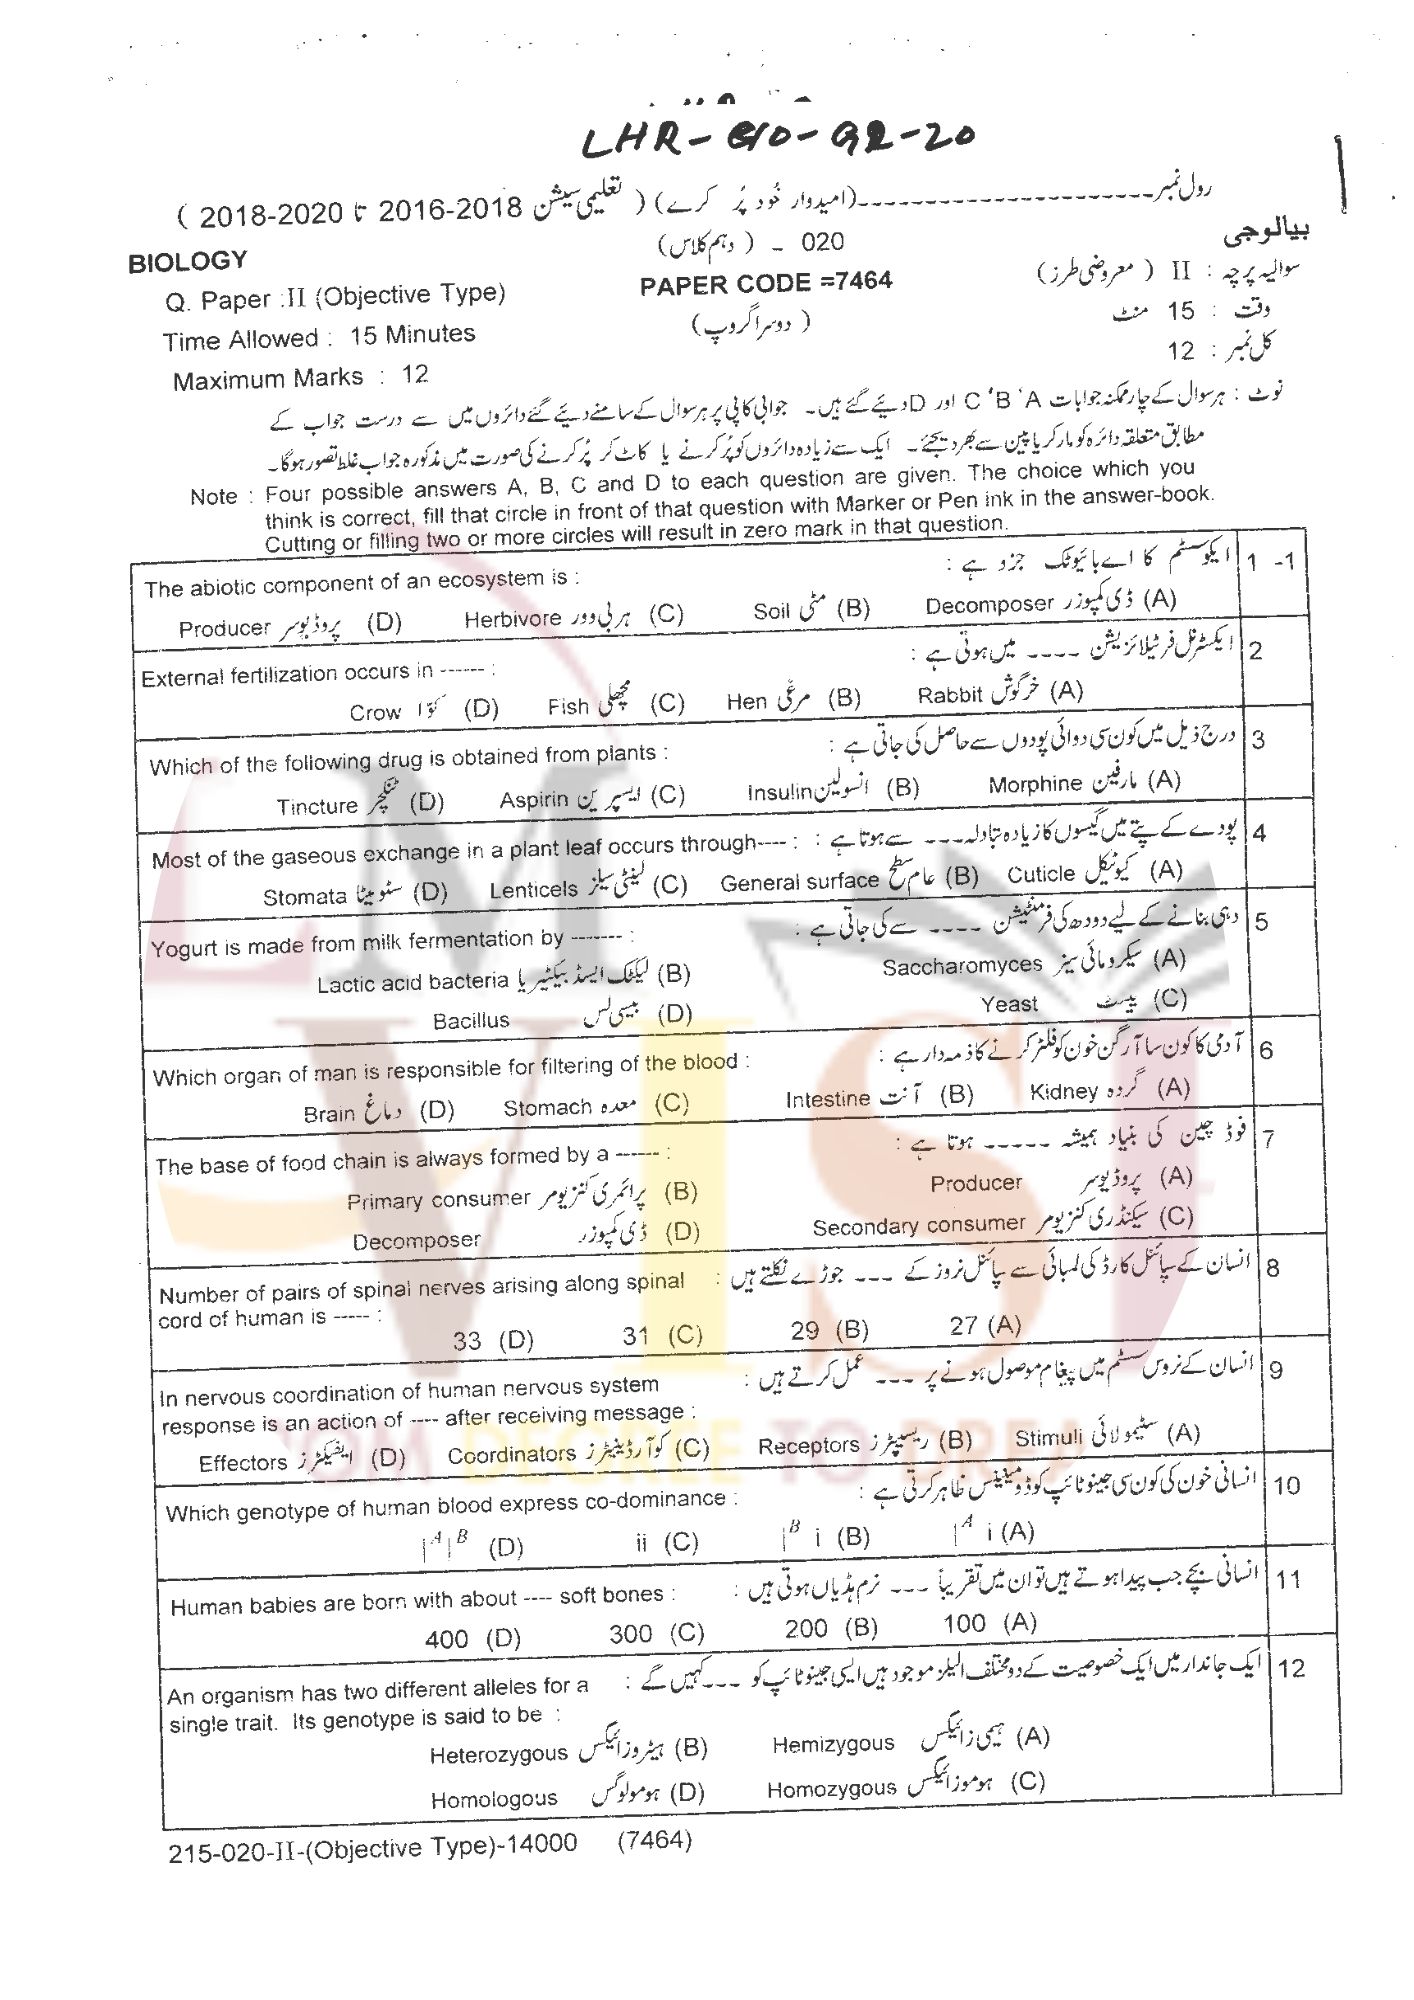 LHR-BIO-G2-20
رول نمبر----------------------(امیدوار خُود پُر کرے) ( تعلیمی سیشن 2018-2016 تا 2020-2018 )
بیالوجی 020 - ( دہم کلاس) BIOLOGY
سوالیہ پرچہ : II ( معروضی طرز) PAPER CODE =7464 Q. Paper :II (Objective Type)
وقت : 15 منٹ ( دوسرا گروپ) Time Allowed : 15 Minutes
کل نمبر : 12 Maximum Marks : 12
نوٹ : ہر سوال کے چار ممکنہ جوابات A ‘ B ‘ C اور D دیئے گئے ہیں۔ جوابی کاپی پر ہر سوال کے سامنے دیئے گئے دائروں میں سے درست جواب کے
مطابق متعلقہ دائرہ کو مارکر یا پین سے بھر دیجئے۔ ایک سے زیادہ دائروں کو پُر کرنے یا کاٹ کر پُر کرنے کی صورت میں مذکورہ جواب غلط تصور ہوگا۔
Note : Four possible answers A, B, C and D to each question are given. The choice which you
think is correct, fill that circle in front of that question with Marker or Pen ink in the answer-book.
Cutting or filling two or more circles will result in zero mark in that question.
1 -1 ایکوسسٹم کا اے بائیوٹک جزو ہے :
The abiotic component of an ecosystem is :
(A) ڈی کمپوزر Decomposer (B) مٹی Soil (C) ہربی وور Herbivore (D) پروڈیوسر Producer
2 ایکسٹرنل فرٹیلائزیشن ---- میں ہوتی ہے :
External fertilization occurs in ------ :
(A) خرگوش Rabbit (B) مرغی Hen (C) مچھلی Fish (D) کوّا Crow
3 درج ذیل میں کون سی دوائی پودوں سے حاصل کی جاتی ہے :
Which of the following drug is obtained from plants :
(A) مارفین Morphine (B) انسولین Insulin (C) ایسپرین Aspirin (D) ٹنکچر Tincture
4 پودے کے پتے میں گیسوں کا زیادہ تبادلہ --- سے ہوتا ہے :
Most of the gaseous exchange in a plant leaf occurs through---- :
(A) کیوٹیکل Cuticle (B) عام سطح General surface (C) لینٹی سیلز Lenticels (D) سٹومیٹا Stomata
5 دہی بنانے کے لیے دودھ کی فرمنٹیشن ---- سے کی جاتی ہے :
Yogurt is made from milk fermentation by ------- :
(A) سیکرومائی سیز Saccharomyces (B) لیکٹک ایسڈ بیکٹیریا Lactic acid bacteria
(C) ییسٹ Yeast (D) بیسی لس Bacillus
6 آدمی کا کون سا آرگن خون کو فلٹر کرنے کا ذمہ دار ہے :
Which organ of man is responsible for filtering of the blood :
(A) گردہ Kidney (B) آنت Intestine (C) معدہ Stomach (D) دماغ Brain
7 فوڈ چین کی بنیاد ہمیشہ ----- ہوتا ہے :
The base of food chain is always formed by a ------ :
(A) پروڈیوسر Producer (B) پرائمری کنزیومر Primary consumer
(C) سیکنڈری کنزیومر Secondary consumer (D) ڈی کمپوزر Decomposer
8 انسان کے سپائنل کارڈ کی لمبائی سے سپائنل نروز کے --- جوڑے نکلتے ہیں :
Number of pairs of spinal nerves arising along spinal
cord of human is ----- :
(A) 27 (B) 29 (C) 31 (D) 33
9 انسان کے نروس سسٹم میں پیغام موصول ہونے پر --- عمل کرتے ہیں :
In nervous coordination of human nervous system
response is an action of ---- after receiving message :
(A) سٹیمولائی Stimuli (B) ریسیپٹرز Receptors (C) کوآرڈینیٹرز Coordinators (D) ایفیکٹرز Effectors
10 انسانی خون کی کون سی جینوٹائپ کوڈومینینس ظاہر کرتی ہے :
Which genotype of human blood express co-dominance :
(A) I^A i (B) I^B i (C) ii (D) I^A I^B
11 انسانی بچے جب پیدا ہوتے ہیں تو ان میں تقریباً --- نرم ہڈیاں ہوتی ہیں :
Human babies are born with about ---- soft bones :
(A) 100 (B) 200 (C) 300 (D) 400
12 ایک جاندار میں ایک خصوصیت کے دو مختلف الیلز موجود ہیں ایسی جینوٹائپ کو --- کہیں گے :
An organism has two different alleles for a
single trait. Its genotype is said to be :
(A) ہیمی زائیگس Hemizygous (B) ہیٹروزائیگس Heterozygous
(C) ہوموزائیگس Homozygous (D) ہومولوگس Homologous
215-020-II-(Objective Type)-14000 (7464)